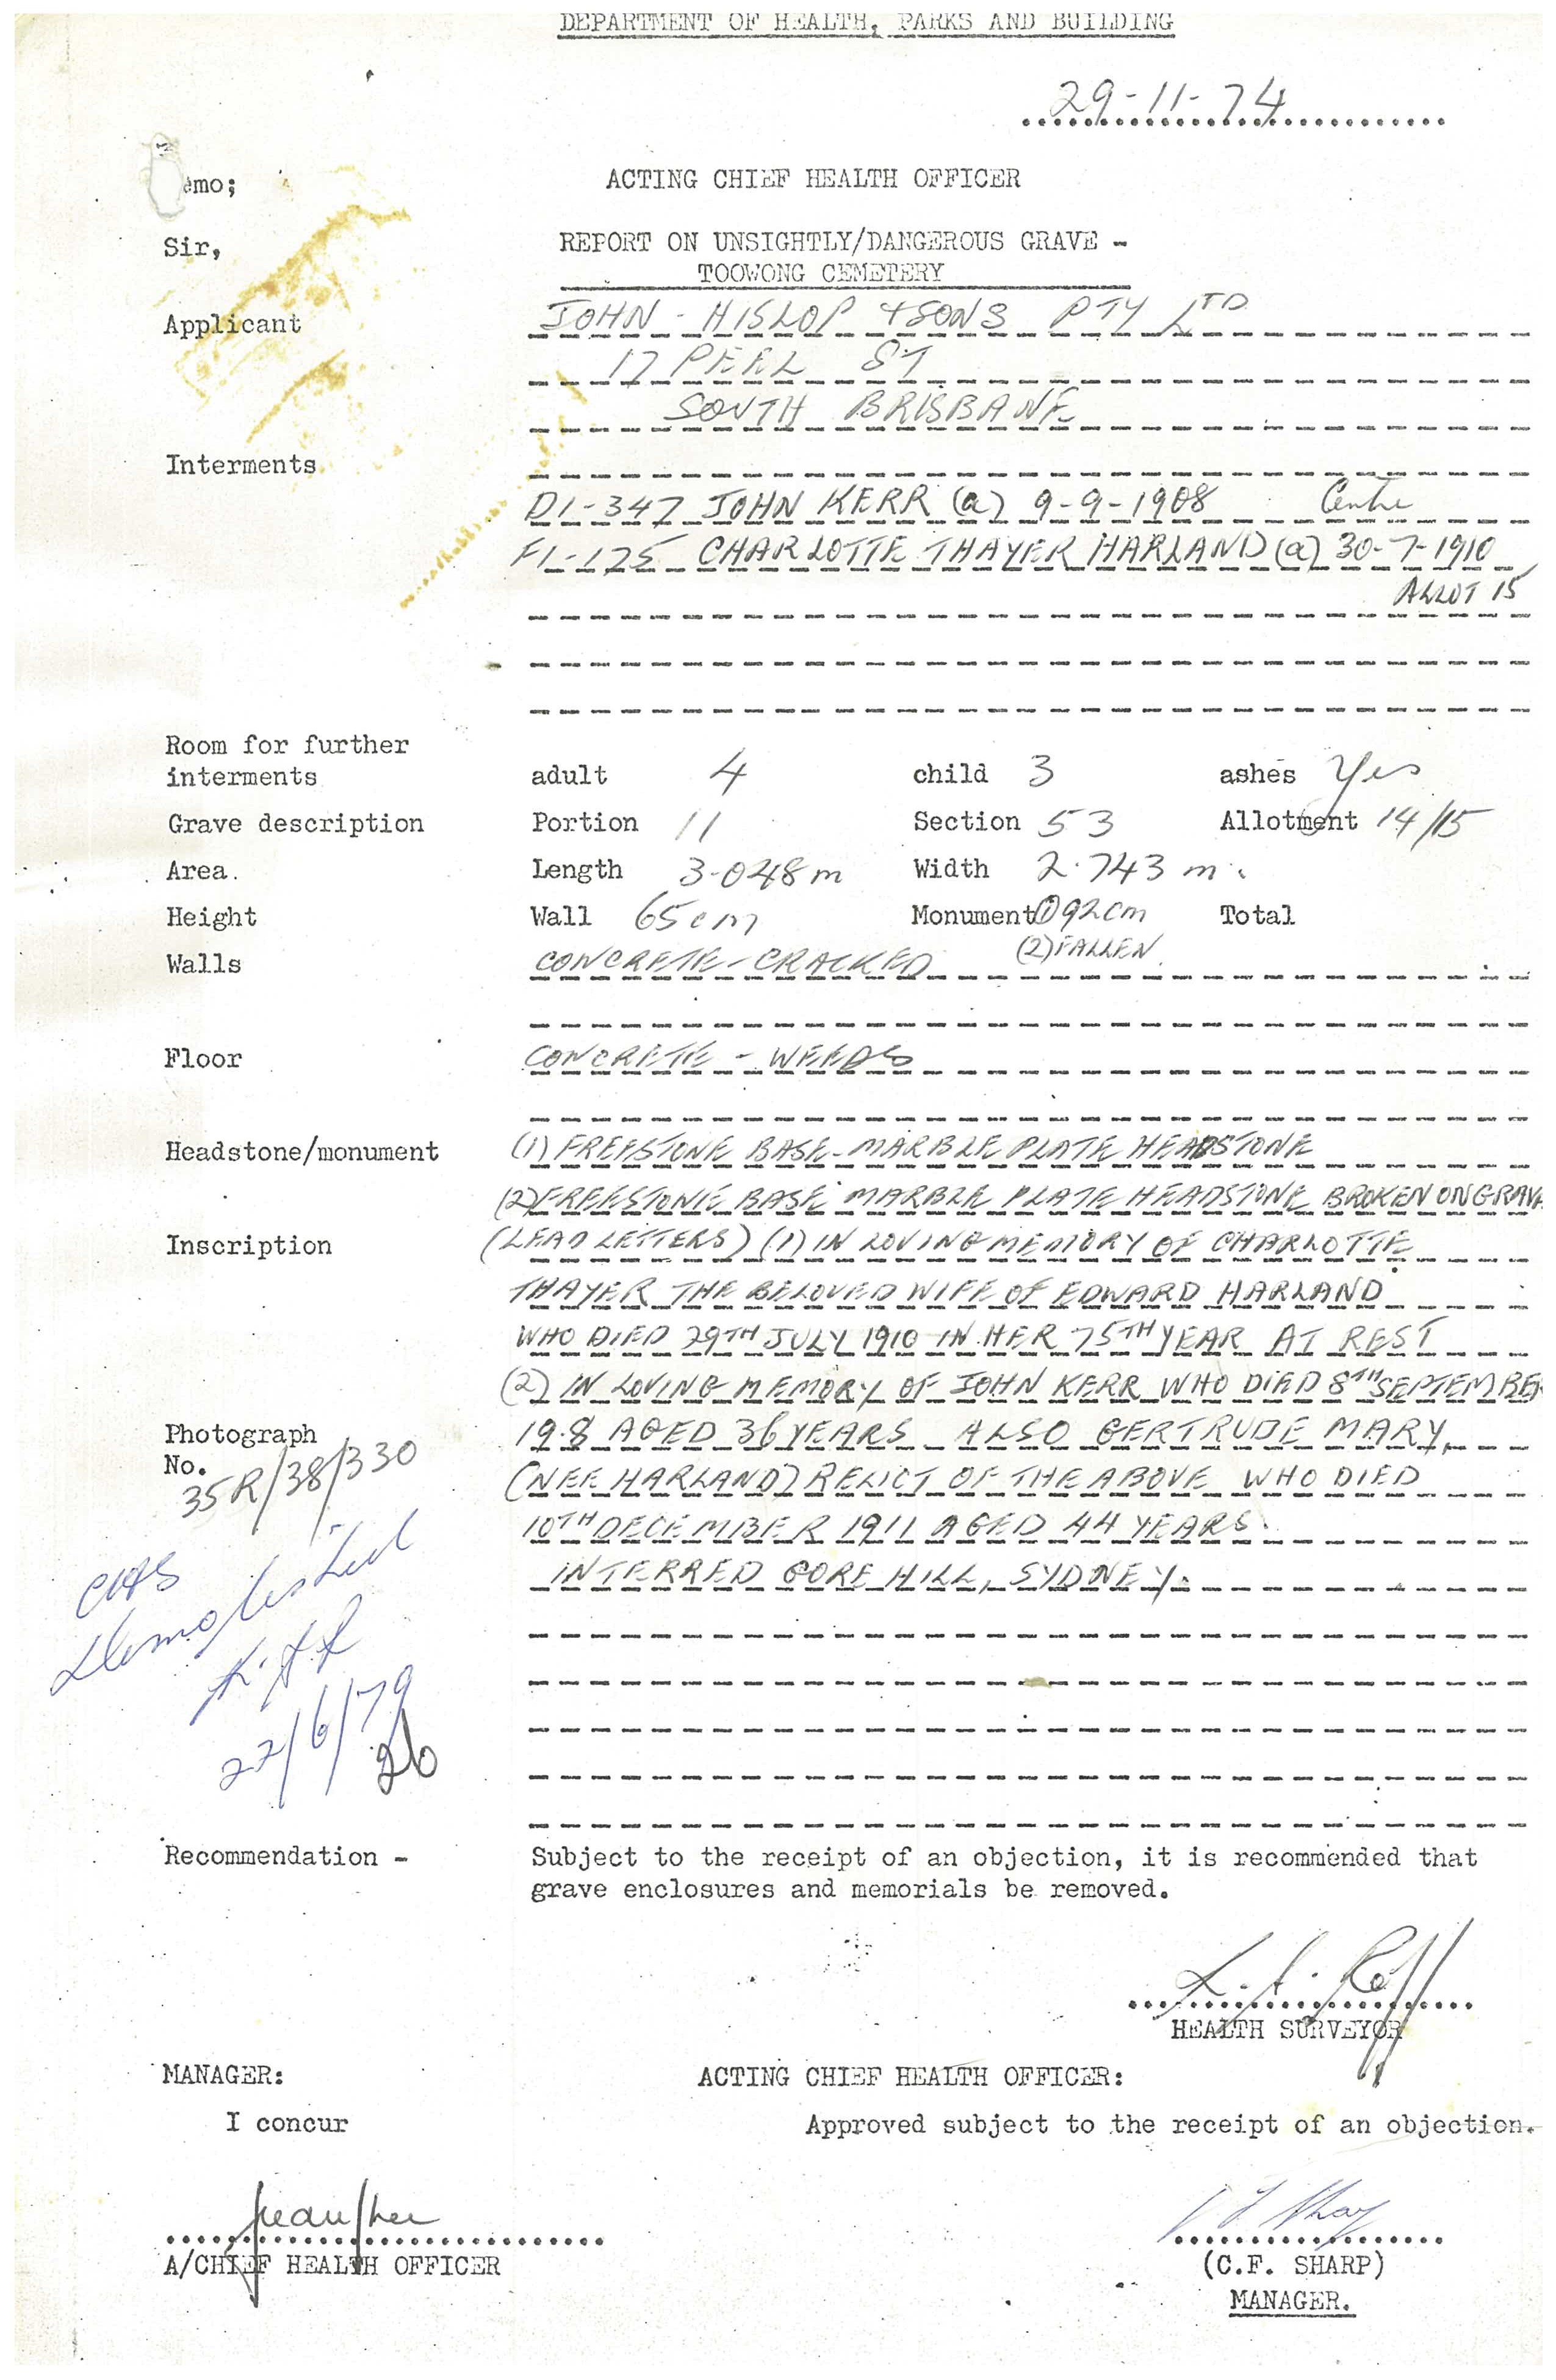 DEPARTMENT OF HEALTH, PARKS AND BUILDING
29-11-74
emo;
ACTING CHIEF HEALTH OFFICER
Sir,
REPORT ON UNSIGHTLY/DANGEROUS GRAVE -
TOOWONG CEMETERY
Applicant
JOHN - HISLOP + SONS PTY LTD
17 PEEL ST
SOUTH BRISBANE
Interments
D1-347 JOHN KERR (a) 9-9-1908 Centre
F1-175 CHARLOTTE THAYER HARLAND (a) 30-7-1910
ALLOT 15
Room for further
interments adult 4 child 3 ashes Yes
Grave description Portion 11 Section 53 Allotment 14/15
Area. Length 3.048m Width 2.743 m.
Height Wall 65cm Monument (1) 92cm Total
(2) FALLEN.
Walls CONCRETE - CRACKED
Floor CONCRETE - WEEDS
Headstone/monument (1) FREESTONE BASE - MARBLE PLATE HEADSTONE
(2) FREESTONE BASE MARBLE PLATE HEADSTONE BROKEN ON GRAVE
Inscription (LEAD LETTERS) (1) IN LOVING MEMORY OF CHARLOTTE
THAYER THE BELOVED WIFE OF EDWARD HARLAND
WHO DIED 29TH JULY 1910 IN HER 75TH YEAR AT REST
(2) IN LOVING MEMORY OF JOHN KERR WHO DIED 8TH SEPTEMBER
Photograph 19.8 AGED 36 YEARS ALSO GERTRUDE MARY,
No. 35R/38/330
(NEE HARLAND) RELICT OF THE ABOVE WHO DIED
10TH DECEMBER 1911 AGED 44 YEARS.
INTERRED GORE HILL, SYDNEY.
Demolished
22/6/79
26
Recommendation - Subject to the receipt of an objection, it is recommended that
grave enclosures and memorials be removed.
HEALTH SURVEYOR
MANAGER: ACTING CHIEF HEALTH OFFICER:
I concur Approved subject to the receipt of an objection.
A/CHIEF HEALTH OFFICER
(C.F. SHARP)
MANAGER.